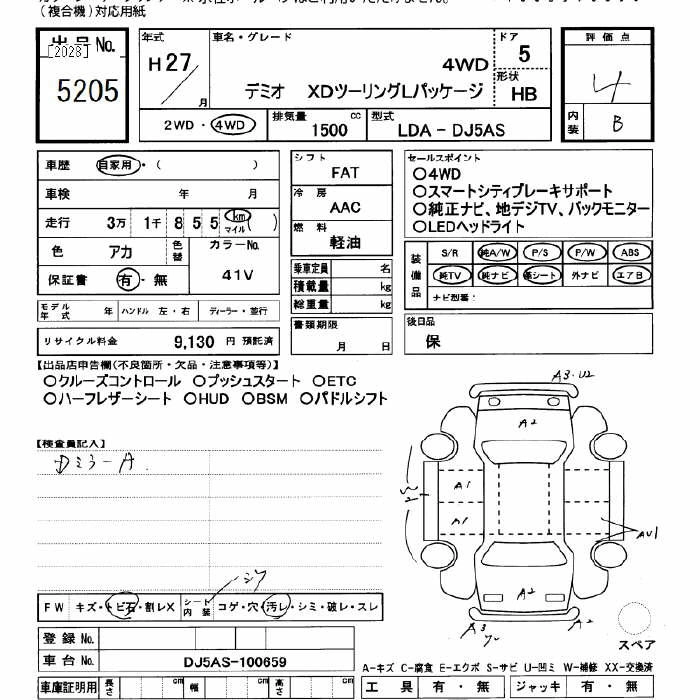 (複合機)対応用紙
出品No.
[2028]
5205
年式
H27/月
車名・グレード
4WD
デミオ XDツーリングLパッケージ
ドア
5
形状
HB
評価点
4
内装
B
2WD・4WD
排気量 cc
1500
型式
LDA-DJ5AS
車歴 自家用・( )
車検 年 月
走行 3万 1千 8 5 5 km マイル ( )
色 アカ 色替 カラーNo.
保証書 有・無 41V
モデル年式 年 ハンドル 左・右 ディーラー・並行
リサイクル料金 9,130 円 預託済
シフト
FAT
冷房
AAC
燃料
軽油
乗車定員 名
積載量 kg
総重量 kg
書類期限
月 日
セールスポイント
○4WD
○スマートシティブレーキサポート
○純正ナビ、地デジTV、バックモニター
○LEDヘッドライト
装備品
S/R 純A/W P/S P/W ABS
純TV 純ナビ 革シート 外ナビ エアB
ナビ型番:
後日品
保
【出品店申告欄(不良箇所・欠品・注意事項等)】
○クルーズコントロール ○プッシュスタート ○ETC
○ハーフレザーシート ○HUD ○BSM ○パドルシフト
【検査員記入】
A3・U2
A2
A1
A1
AU1
A2
A3
FW キズ・トビ石・割レX シート内装 コゲ・穴・汚レ・シミ・破レ・スレ
登録No.
車台No. DJ5AS-100659
車庫証明用 長さ cm 幅 cm 高さ cm
スペア
A-キズ C-腐食 E-エクボ S-サビ U-凹ミ W-補修 XX-交換済
工具 有・無 ジャッキ 有・無